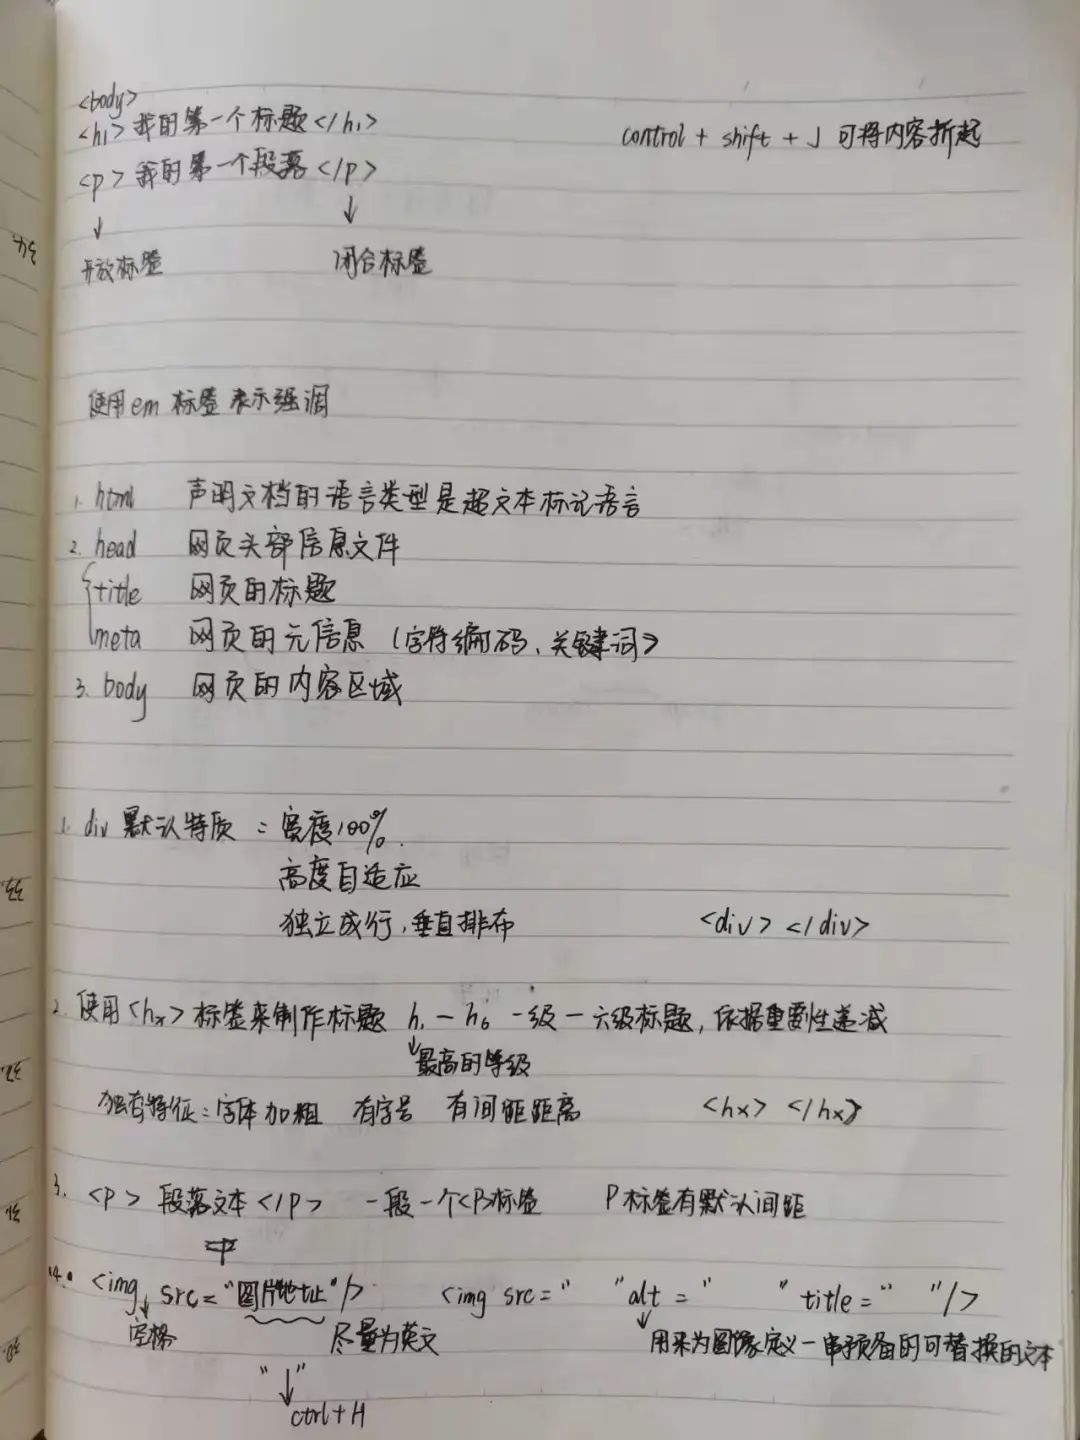 <body>
<h1>我的第一个标题</h1>
control + shift + J 可将内容折起
<p>我的第一个段落</p>
↓ ↓
开放标签 闭合标签
使用em 标签 表示强调
1. html 声明文档的语言类型是超文本标记语言
2. head 网页头部信息文件
title 网页的标题
meta 网页的元信息 (字符编码、关键词)
3. body 网页的内容区域
1. div 默认特质: 宽度100%.
高度自适应
独立成行,垂直排布 <div> </div>
2. 使用<hx>标签来制作标题 h1 — h6 一级—六级标题,依据重要性递减
↓最高的等级
独有特征:字体加粗 有字号 有间距距离 <hx> </hx>
3. <p> 段落文本</p> 一段一个<P>标签 P标签有默认间距
中
4. <img src="图片地址"/> <img src=" "alt=" " title=" "/>
空格 尽量为英文 用来为图像定义一串预备的可替换的文本
" "
↓
ctrl+H
34.
33.
32.
31.
30.